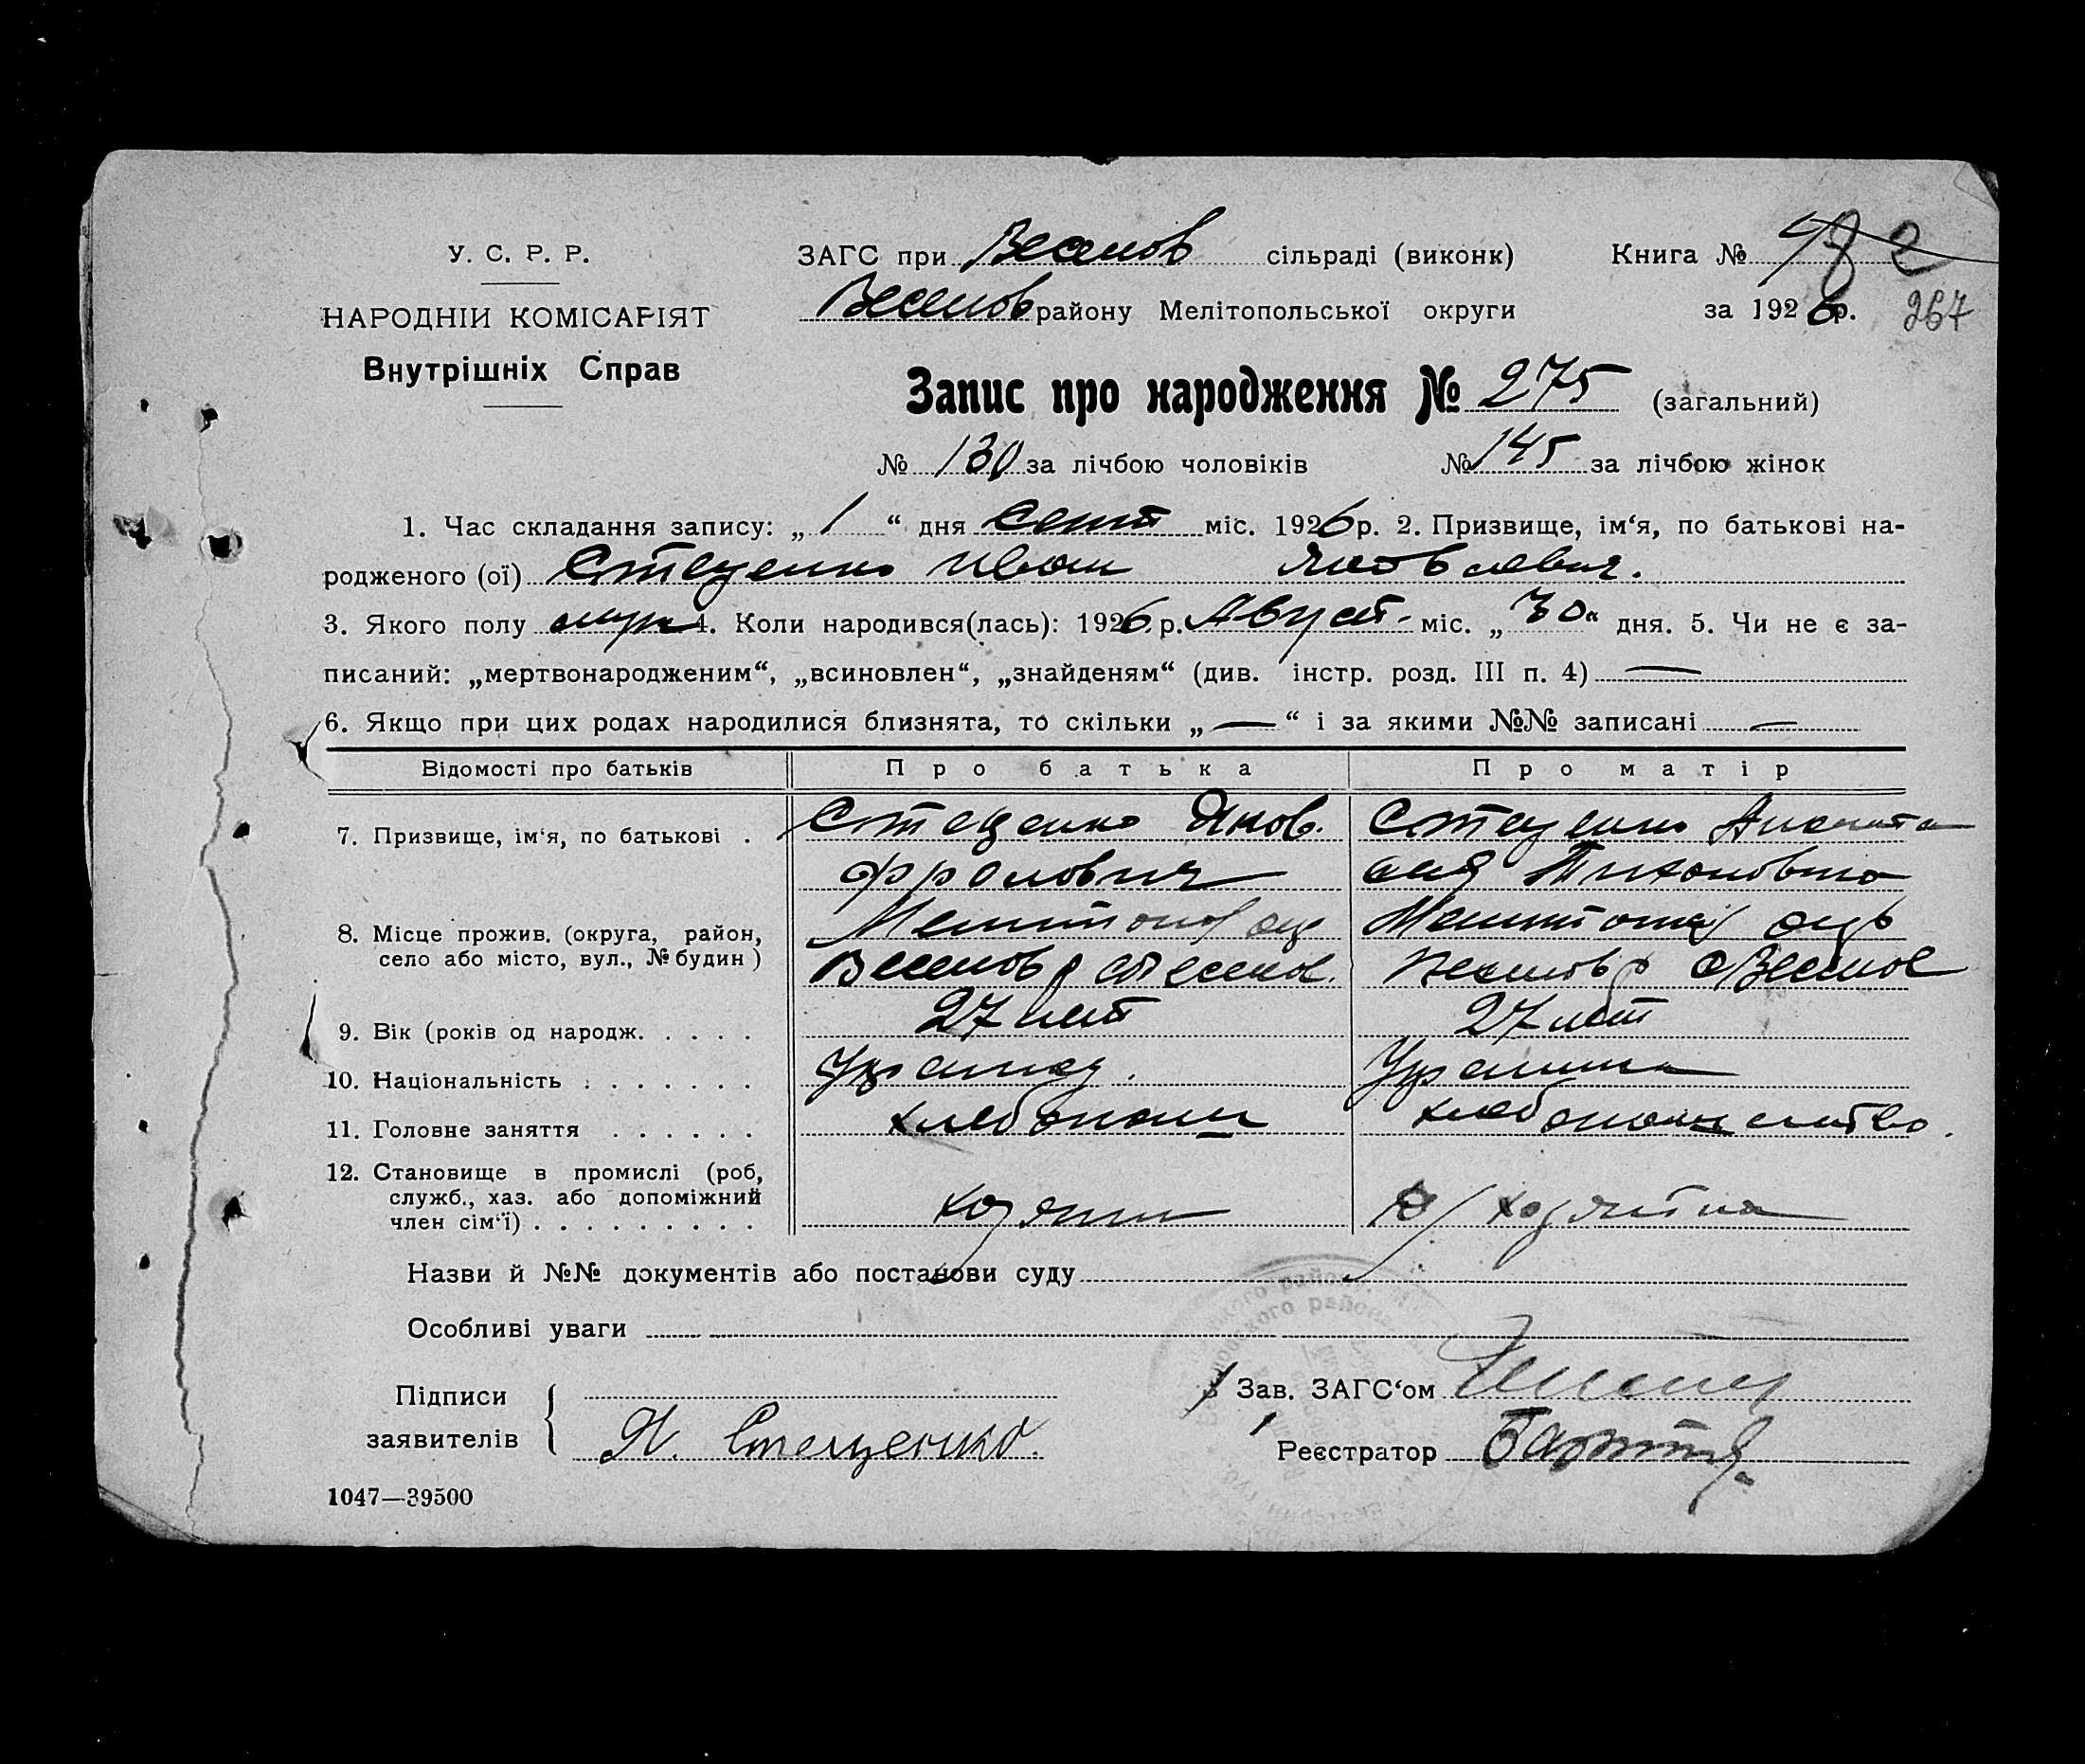 У. С. Р. Р.
НАРОДНІЙ КОМІСАРІЯТ
Внутрішніх Справ
ЗАГС при Веселов сільраді (виконк) Книга №
Веселов району Мелітопольської округи за 1926 р. 267
Запис про народження № 275 (загальний)
№ 130 за лічбою чоловіків № 145 за лічбою жінок
1. Час складання запису: „ 1 “ дня Сент міс. 1926 р. 2. Призвище, ім‘я, по батькові на-
родженого (ої) Стеценко Иван Яковлевич.
3. Якого полу муж 4. Коли народився(лась): 1926 р. Август міс. „ 30 “ дня. 5. Чи не є за-
писаний: „мертвонародженим“, „всиновлен“, „знайденям“ (див. інстр. розд. III п. 4) —
6. Якщо при цих родах народилися близнята, то скільки „ — “ і за якими №№ записані —
Відомості про батьків Про батька Про матір
7. Призвище, ім‘я, по батькові . Стеценко Яков. Стеценко
Фролович Тихоновна
8. Місце прожив. (округа, район,
село або місто, вул., № будин) Веселов р Веселое
9. Вік (років од народж. . . . . 27 лет 27 лет
10. Національність . . . . . . . Украинец. Украинка
11. Головне заняття . . . . . . хлебопаш хлебопашество.
12. Становище в промислі (роб,
служб., хаз. або допоміжний
член сім‘ї) . . . . . . . . . хозяин хозяйка
Назви й №№ документів або постанови суду
Особливі уваги
Підписи
заявителів Я. Стеценко.
Зав. ЗАГС‘ом
Реєстратор
1047—39500